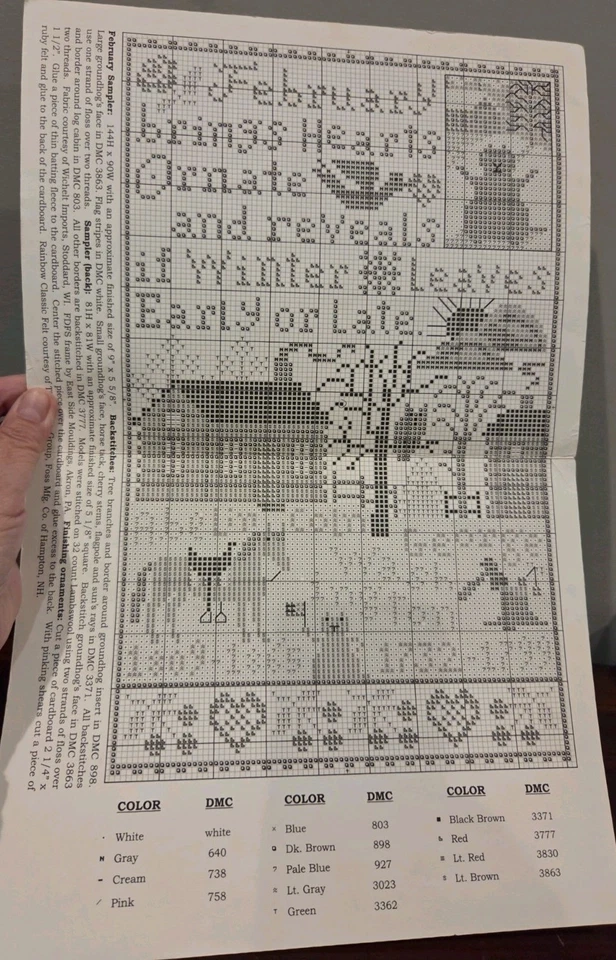 February Sampler: 144H x 90W with an approximate finished size of 9" x 5 5/8". Backstitches: Tree branches and border around groundhog insert in DMC 898.
Large groundhog's face in DMC 3863. Flag stripes in DMC white. Small groundhog's face, horse tack, cherry stems, flagpole and sun's rays in DMC 3371. All backstitches
use one strand of floss over two threads. Sampler (back): 81H x 81W with an approximate finished size of 5 1/8" square. Backstitch groundhog's face in DMC 3863
and border around log cabin in DMC 803. All other borders are backstitched in DMC 3777. Models were stitched on 32 count Lambswool using two strands of floss over
two threads. Fabric courtesy of Wichelt Imports, Stoddard, WI. FDFS frame by East Side Mouldings, Akron, PA. Finishing ornaments: Cut a piece of cardboard 2 1/4" x
1 1/2". Glue a piece of thin batting fleece to the cardboard. Center the stitched piece over the cardboard and glue excess to the back. With pinking shears cut a piece of
ruby felt and glue to the back of the cardboard. Rainbow Classic Felt courtesy of Group, Foss Mfg. Co. of Hampton, NH.
February
Brings Hearts
Ornate
and reveals
if Winter Leaves
Early or Late.
COLOR DMC
White white
Gray 640
Cream 738
Pink 758
COLOR DMC
Blue 803
Dk. Brown 898
Pale Blue 927
Lt. Gray 3023
Green 3362
COLOR DMC
Black Brown 3371
Red 3777
Lt. Red 3830
Lt. Brown 3863